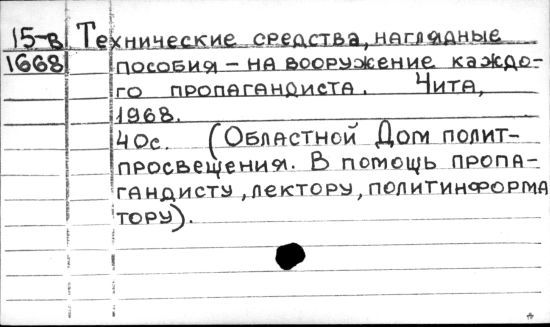 15-в Технические средства, наглядные
1668 пособия – на вооружение каждо-
го пропагандиста. Чита,
1968.
40с. (Областной Дом полит-
просвещения. В помощь пропа-
гандисту, лектору, политинформа
тору).